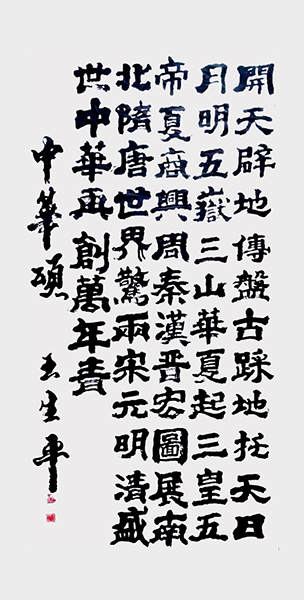 開天辟地傳盤古踩地托天日
月明五嶽三山華夏起三皇五
帝夏商興周秦漢晋宏圖展南
北隋唐世界驚兩宋元明清盛
世中華再創萬年青
中華頌 王生平